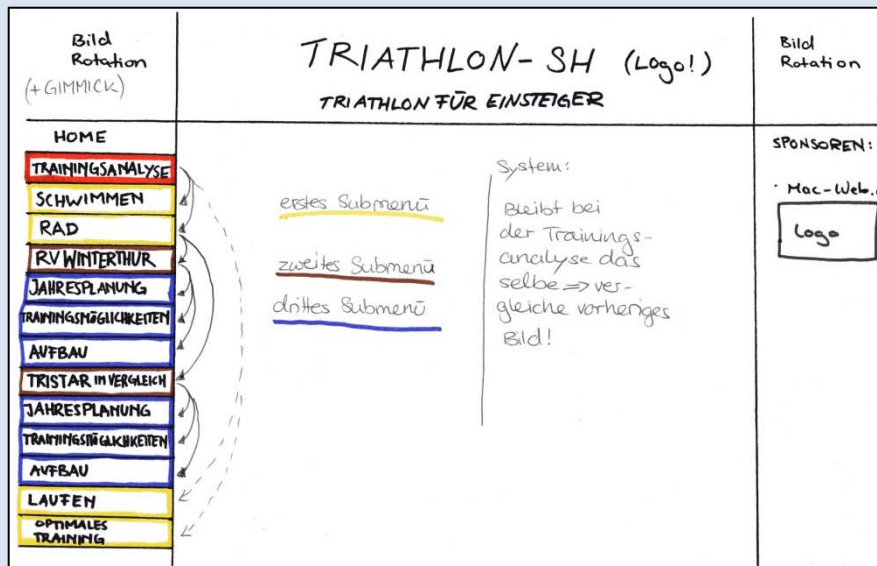 Bild
Rotation
(+GIMMICK)
TRIATHLON-SH (Logo!)
TRIATHLON FÜR EINSTEIGER
Bild
Rotation
HOME
TRAININGSANALYSE
SCHWIMMEN
RAD
RV WINTERTHUR
JAHRESPLANUNG
TRAININGSMÖGLICHKEITEN
AUFBAU
TRISTAR IM VERGLEICH
JAHRESPLANUNG
TRAININGSMÖGLICHKEITEN
AUFBAU
LAUFEN
OPTIMALES
TRAINING
erstes Submenü
zweites Submenü
drittes Submenü
System:
Bleibt bei
der Trainings-
analyse das
selbe => ver-
gleiche vorheriges
Bild!
SPONSOREN:
· Mac-Web.
Logo